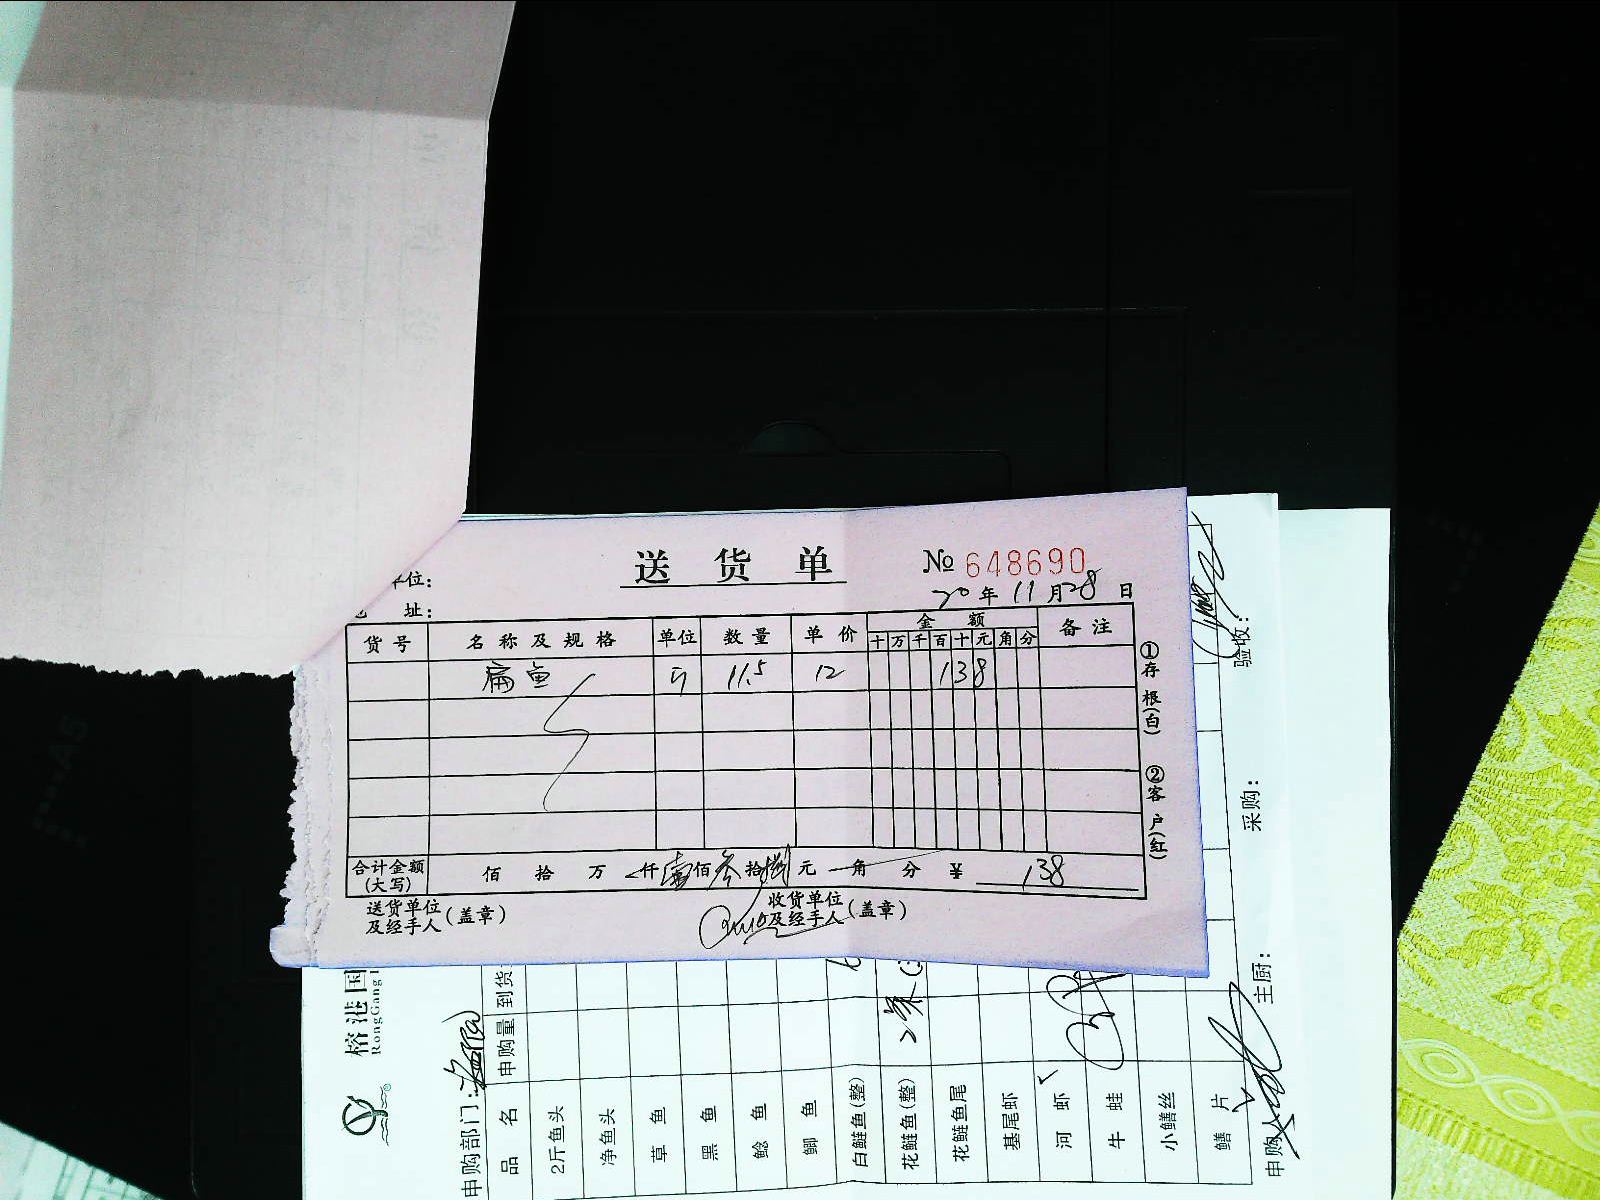 送 货 单
№ 648690
单位：
址：
20年11月28日
货号 名称及规格 单位 数量 单价 金额 备注
十 万 千 百 十 元 角 分
扁鱼 斤 11.5 12 138
合计金额(大写) 佰 拾 万 仟 壹佰叁拾捌元 角 分 ¥ 138
送货单位及经手人(盖章) 收货单位及经手人(盖章)
①存根(白) ②客户(红)
榕港国
RongGangI
申购部门：
品名 申购量 到货
2斤鱼头
净鱼头
草鱼
黑鱼
鲶鱼
鲫鱼
白鲢鱼(整)
花鲢鱼(整)
花鲢鱼尾
基尾虾
河虾
牛蛙
小鳝丝
鳝片
申购人 主厨： 采购： 验收：
A5